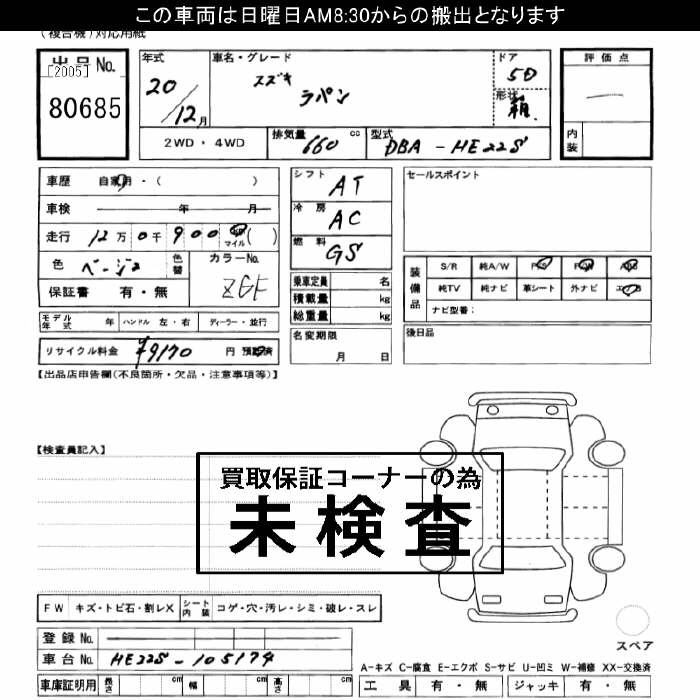 この車両は日曜日AM8:30からの搬出となります
(複合機)対応用紙
出品No.
[2005]
80685
年式
20/12月
車名・グレード
スズキ
ラパン
ドア
5D
形状
箱
評価点
—
内装
2WD・4WD
排気量
660
cc
型式
DBA-HE22S
車歴 自家用・( )
車検 年 月
走行 12万0千900 km マイル( )
色 ベージュ
色替
カラーNo.
ZGF
保証書 有・無
シフト
AT
冷房
AC
燃料
GS
乗車定員 名
積載量 kg
総重量 kg
セールスポイント
装備品
S/R 純A/W P/S P/W ABS
純TV 純ナビ 革シート 外ナビ エアB
ナビ型番:
モデル年式 年 ハンドル 左・右 ディーラー・並行
リサイクル料金 ¥9170 円 預託済
名変期限
月 日
後日品
【出品店申告欄(不良箇所・欠品・注意事項等)】
【検査員記入】
買取保証コーナーの為
未検査
FW キズ・トビ石・割レX
シート内装 コゲ・穴・汚レ・シミ・破レ・スレ
登録No.
車台No. HE22S-105174
車庫証明用 長さ cm 幅 cm 高さ cm
スペア
A-キズ C-腐食 E-エクボ S-サビ U-凹ミ W-補修 XX-交換済
工具 有・無 ジャッキ 有・無